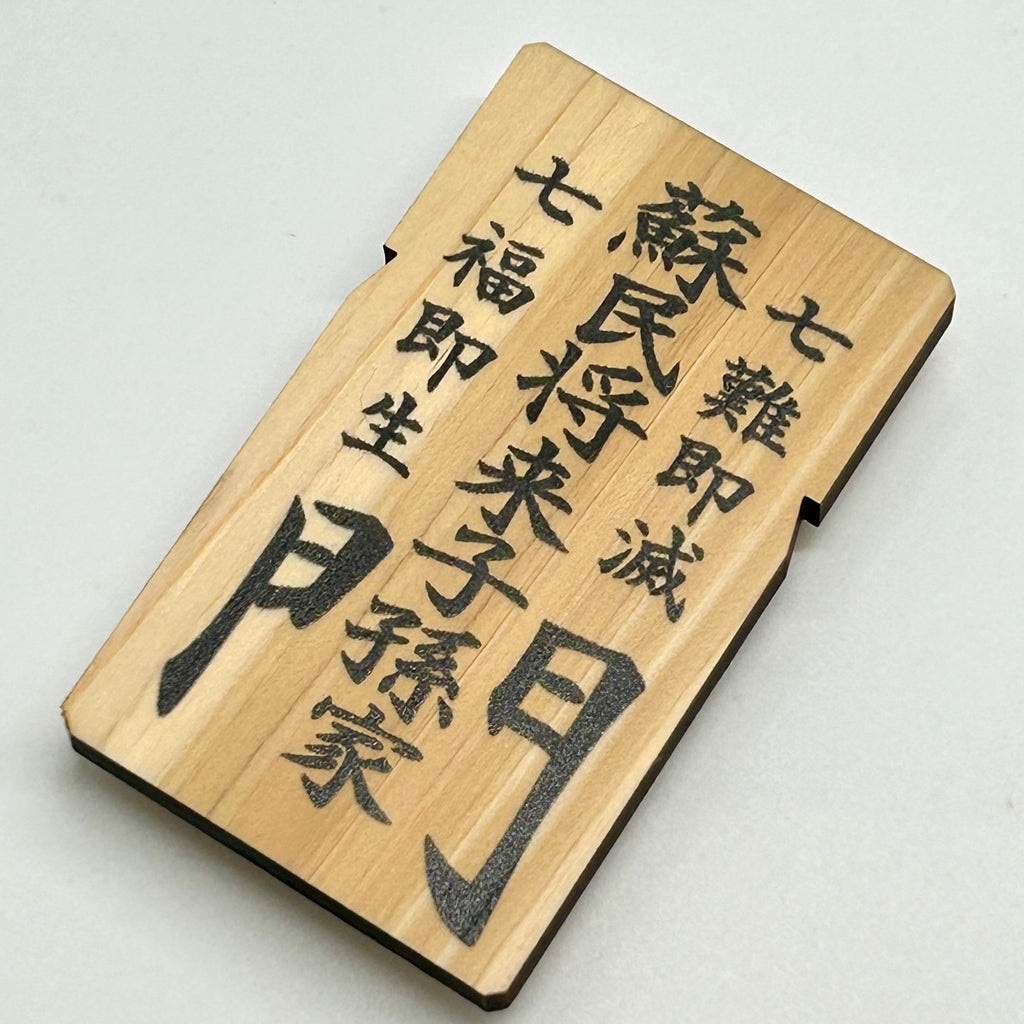 七難即滅
蘇民将来子孫家
七福即生
門